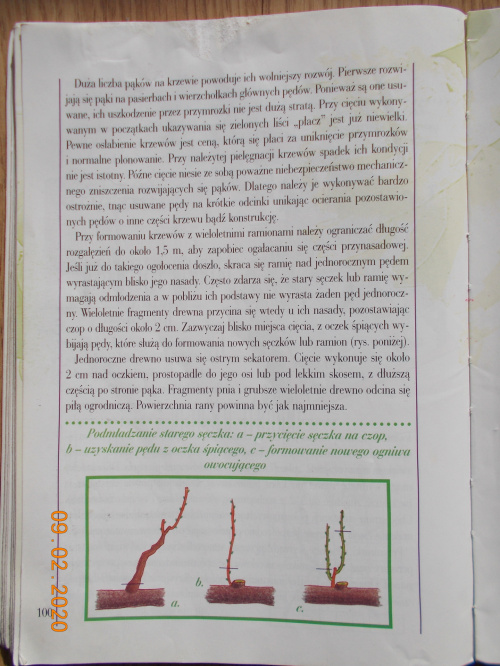 Duża liczba pąków na krzewie powoduje ich wolniejszy rozwój. Pierwsze rozwi-
jają się pąki na pasierbach i wierzchołkach głównych pędów. Ponieważ są one usu-
wane, ich uszkodzenie przez przymrozki nie jest dużą stratą. Przy cięciu wykony-
wanym w początkach ukazywania się zielonych liści „płacz" jest już niewielki.
Pewne osłabienie krzewów jest ceną, którą się płaci za uniknięcie przymrozków
i normalne plonowanie. Przy należytej pielęgnacji krzewów spadek ich kondycji
nie jest istotny. Późne cięcie niesie ze sobą poważne niebezpieczeństwo mechanicz-
nego zniszczenia rozwijających się pąków. Dlatego należy je wykonywać bardzo
ostrożnie, tnąc usuwane pędy na krótkie odcinki unikając ocierania pozostawio-
nych pędów o inne części krzewu bądź konstrukcję.
Przy formowaniu krzewów z wieloletnimi ramionami należy ograniczać długość
rozgałęzień do około 1,5 m, aby zapobiec ogałacaniu się części przynasadowej.
Jeśli już do takiego ogołocenia doszło, skraca się ramię nad jednorocznym pędem
wyrastającym blisko jego nasady. Często zdarza się, że stary sęczek lub ramię wy-
magają odmłodzenia a w pobliżu ich podstawy nie wyrasta żaden pęd jednorocz-
ny. Wieloletnie fragmenty drewna przycina się wtedy u ich nasady, pozostawiając
czop o długości około 2 cm. Zazwyczaj blisko miejsca cięcia, z oczek śpiących wy-
bijają pędy, które służą do formowania nowych sęczków lub ramion (rys. poniżej).
Jednoroczne drewno usuwa się ostrym sekatorem. Cięcie wykonuje się około
2 cm nad oczkiem, prostopadle do jego osi lub pod lekkim skosem, z dłuższą
częścią po stronie pąka. Fragmenty pnia i grubsze wieloletnie drewno odcina się
piłą ogrodniczą. Powierzchnia rany powinna być jak najmniejsza.
Podmładzanie starego sęczka: a – przycięcie sęczka na czop,
b – uzyskanie pędu z oczka śpiącego, c – formowanie nowego ogniwa
owocującego
a.
b.
c.
100
09.02.2020